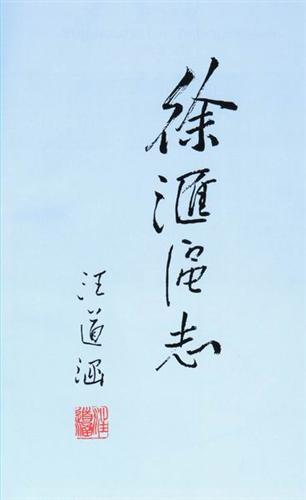 徐滙區志
汪道涵